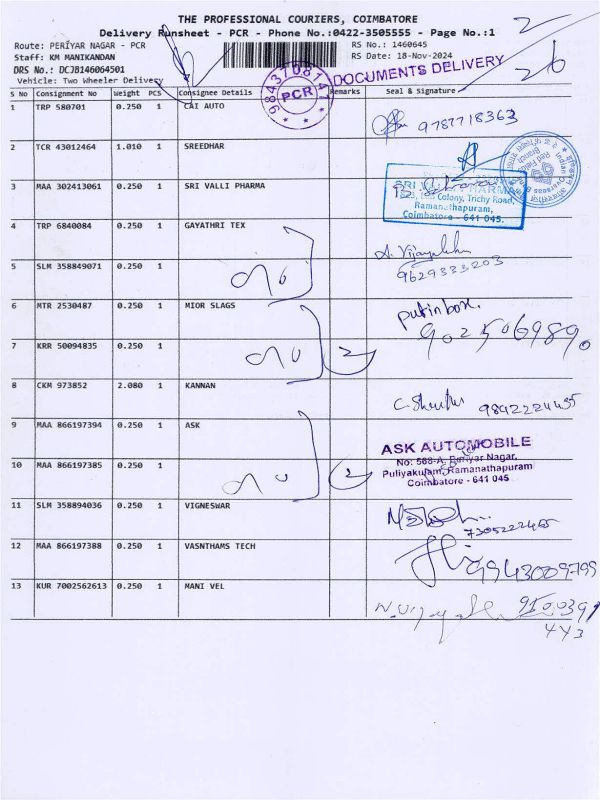 THE PROFESSIONAL COURIERS, COIMBATORE
Delivery Runsheet - PCR - Phone No.:0422-3505555 - Page No.:1
Route: PERIYAR NAGAR - PCR
RS No.: 1460645
Staff: KM MANIKANDAN
RS Date: 18-Nov-2024
DRS No.: DCJB146064501
Vehicle: Two Wheeler Delivery
DOCUMENTS DELIVERY
PCR
S No Consignment No Weight PCS Consignee Details Remarks Seal & Signature
1 TRP 580701 0.250 1 CAI AUTO
9787718363
2 TCR 43012464 1.010 1 SREEDHAR
3 MAA 302413061 0.250 1 SRI VALLI PHARMA
SRI VALLI PHARMA
Colony, Trichy Road,
Ramanathapuram,
Coimbatore - 641 045.
4 TRP 6840084 0.250 1 GAYATHRI TEX
9629333203
5 SLM 358849071 0.250 1
6 MTR 2530487 0.250 1 MIOR SLAGS
put in box.
7 KRR 50094835 0.250 1
2
8 CKM 973852 2.080 1 KANNAN
9892224455
9 MAA 866197394 0.250 1 ASK
ASK AUTOMOBILE
No: 568-A, Periyar Nagar,
Puliyakulam, Ramanathapuram
Coimbatore - 641 045
10 MAA 866197385 0.250 1
2
11 SLM 358894036 0.250 1 VIGNESWAR
7305222465
12 MAA 866197388 0.250 1 VASNTHAMS TECH
9943009799
13 KUR 7002562613 0.250 1 MANI VEL
443